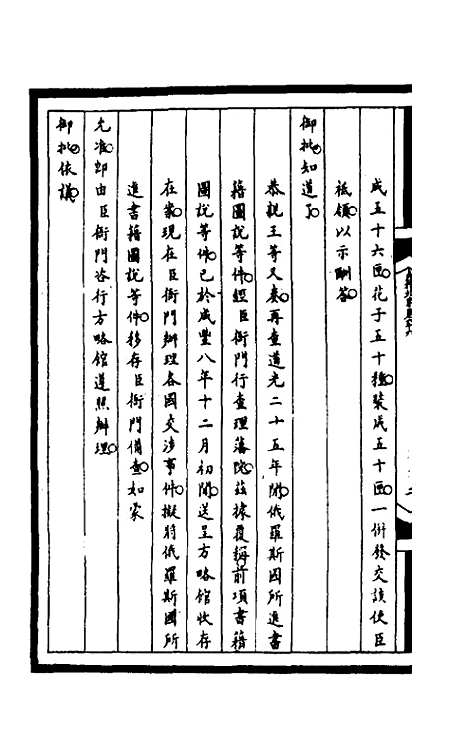 成五十六匣。花子五十種。裝成五十匣。一併發交該使臣
祗領。以示酬答。
御批。知道了。
恭親王等又奏。再查道光二十五年閒。俄羅斯國所進書
籍圖說等件。經臣衙門行查理藩院。茲據覆稱。前項書籍
圖說等件。已於咸豐八年十二月初閒。送呈方略館收存
在案。現在臣衙門辦理各國交涉事件。擬將俄羅斯國所
進書籍圖說等件。移存臣衙門備查。如蒙
允准。卽由臣衙門咨行方略館遵照辦理。
御批。依議。